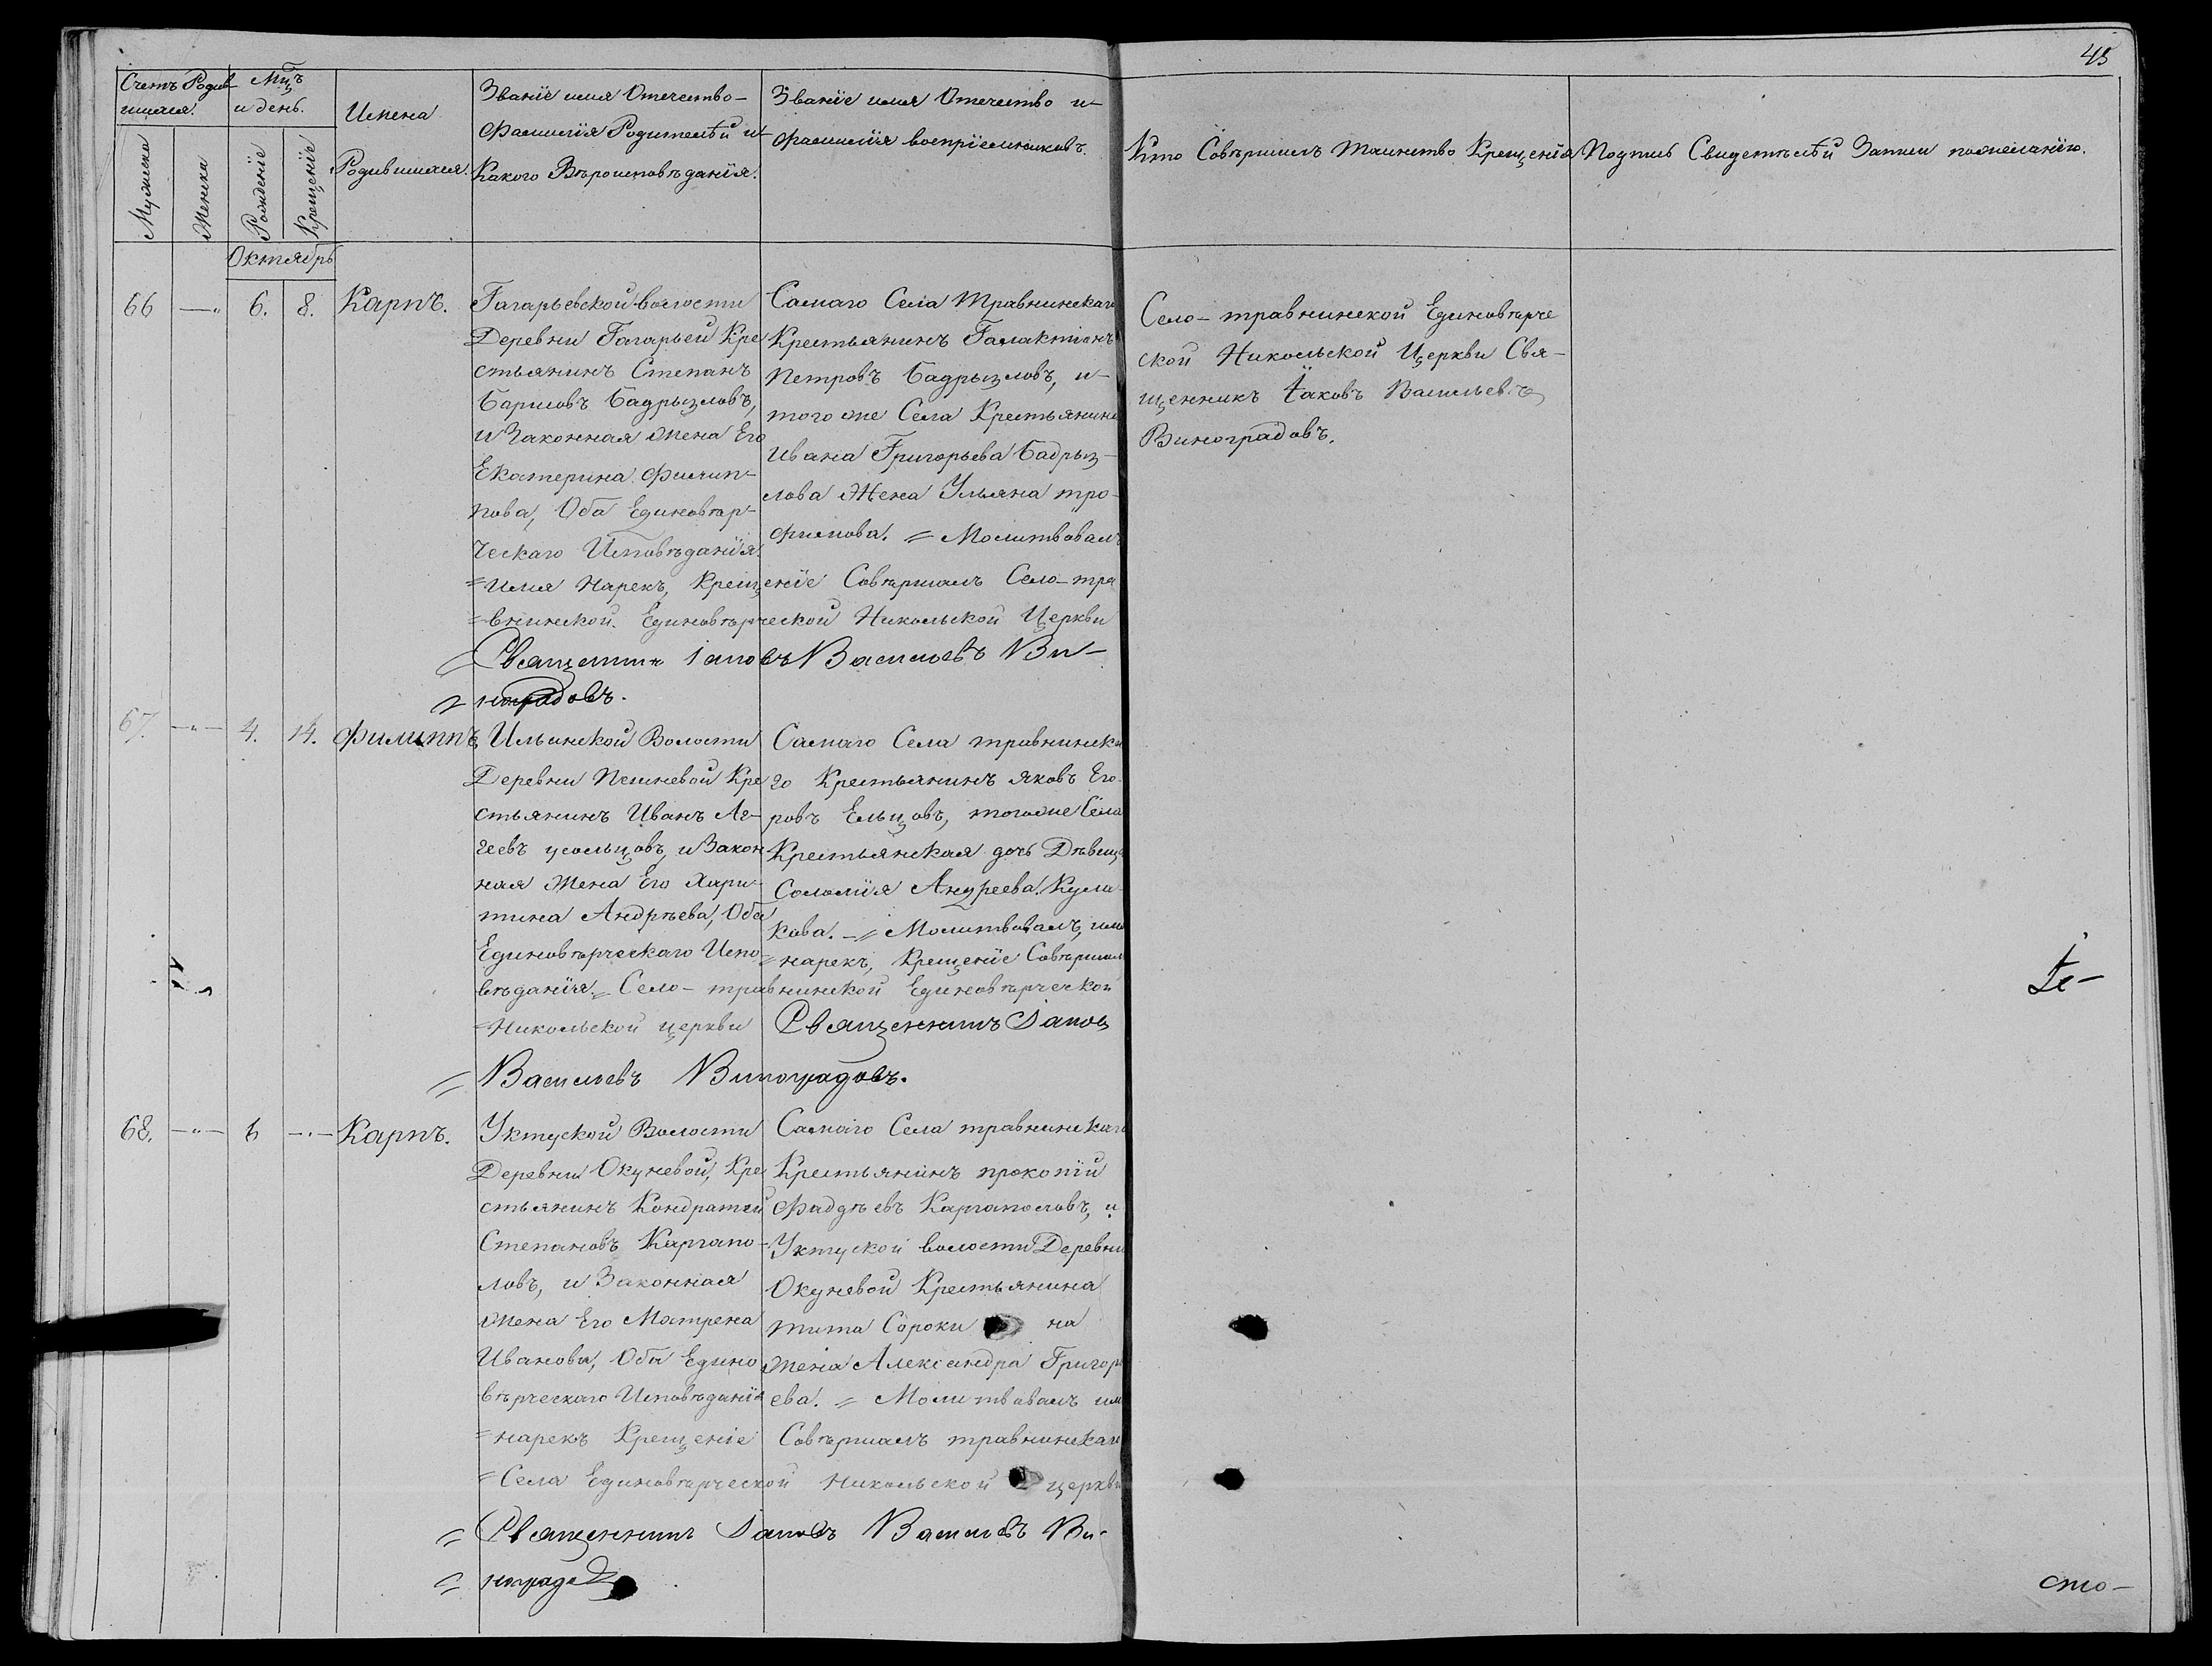 45
Счетъ Родив-
шихся.
Мцъ
и день.
Имена
Родившихся.
Званіе имя Отечество-
Фамилія Родителѣй и-
Какого Вѣроисповѣданія.
Званіе имя Отечество и-
Фамилія воспріемниковъ.
Кто Совѣршилъ Таинство Крещенія
Подпись Свидетѣлѣй Записи пожеланію.
Мужеска
Женска
Рожденіе
Крещеніе
Октябрь
66 —"— 6. 8. Карпъ.
Гагарьевской волости
Деревни Гагарьей Кре
стьянинъ Степанъ
Барисовъ Бадрызловъ,
и Законная жена Его
Екатерина Филип-
пова, Оба Единовѣр-
ческаго Исповѣданія.
Самаго Села Травнинскаго
Крестьянинъ Галактіонъ
Петровъ Бадрызловъ, и-
того же Села Крестьянина
Ивана Григорьева Бадрыз-
лова Жена Ульяна тро-
фимова. = Молитвовалъ
=имя Нарекъ, Крещеніе Совѣршалъ Село-тра
=внинской. Единовѣрческой Никольской Церкви
= Священникъ Іаковъ Васильевъ Ви-
= ноградовъ.
Село-травнинской Единовѣрче
ской Никольской Церкви Свя-
щенникъ Іаковъ Васильевъ
Виноградовъ.
67. —"— 4. 14. Филиппъ
Ильинской Волости
Деревни Пешневой Кре
стьянинъ Иванъ Аг-
геевъ усольцовъ, и Закон
ная Жена Его Хари-
тина Андрѣева, Оба
Единовѣрческаго Испо-
вѣданія.
Самаго Села травнинска
го Крестьянинъ Яковъ Его-
ровъ Ельцовъ, тогоже Села
Крестьянская дочь Дѣвица
Соломія Андреева. Кули-
кова. -= Молитвовалъ, имя
=нарекъ, Крещеніе Совѣршал
= Село-травнинской Единовѣрческой
=Никольской церкви Священникъ Іаковъ
= Васильевъ Виноградовъ.
Іе-
68. —"— 6 —"— Карпъ.
Уктуской Волости
Деревни Окуневой, Кре
стьянинъ Кондратей
Степановъ Каргапо-
ловъ, и Законная
жена Его Матрена
Иванова, Оба Едино
вѣрческаго Исповѣданія
Самаго Села травнинскаго
Крестьянинъ прокопій
Фадѣевъ Каргаполовъ, и
Уктуской волости Деревни
Окуневой Крестьянина
тита Сороки на
жена Александра Григорь
ева. = Молитвовалъ имя
=нарекъ Крещеніе Совѣршалъ травнинскаго
=Села Единовѣрческой Никольской церкви
= Священникъ Іаковъ Васильевъ Ви-
= ноградовъ
сто-